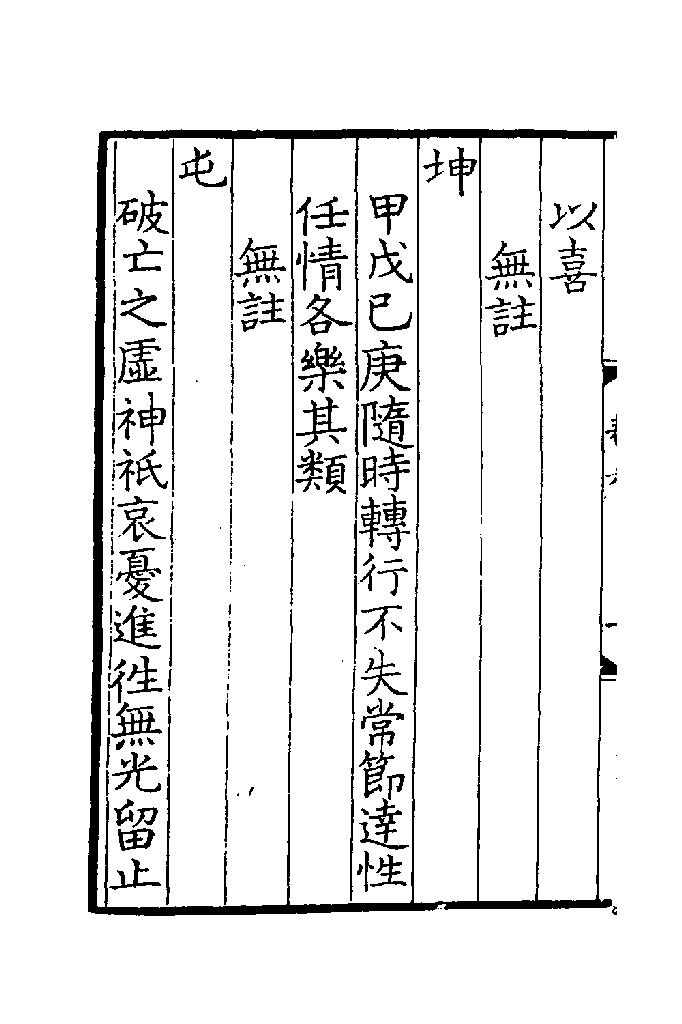 以喜
無註
坤
甲戊己庚隨時轉行不失常節達性
任情各樂其類
無註
屯
破亡之虛神祇哀憂進往無光留止